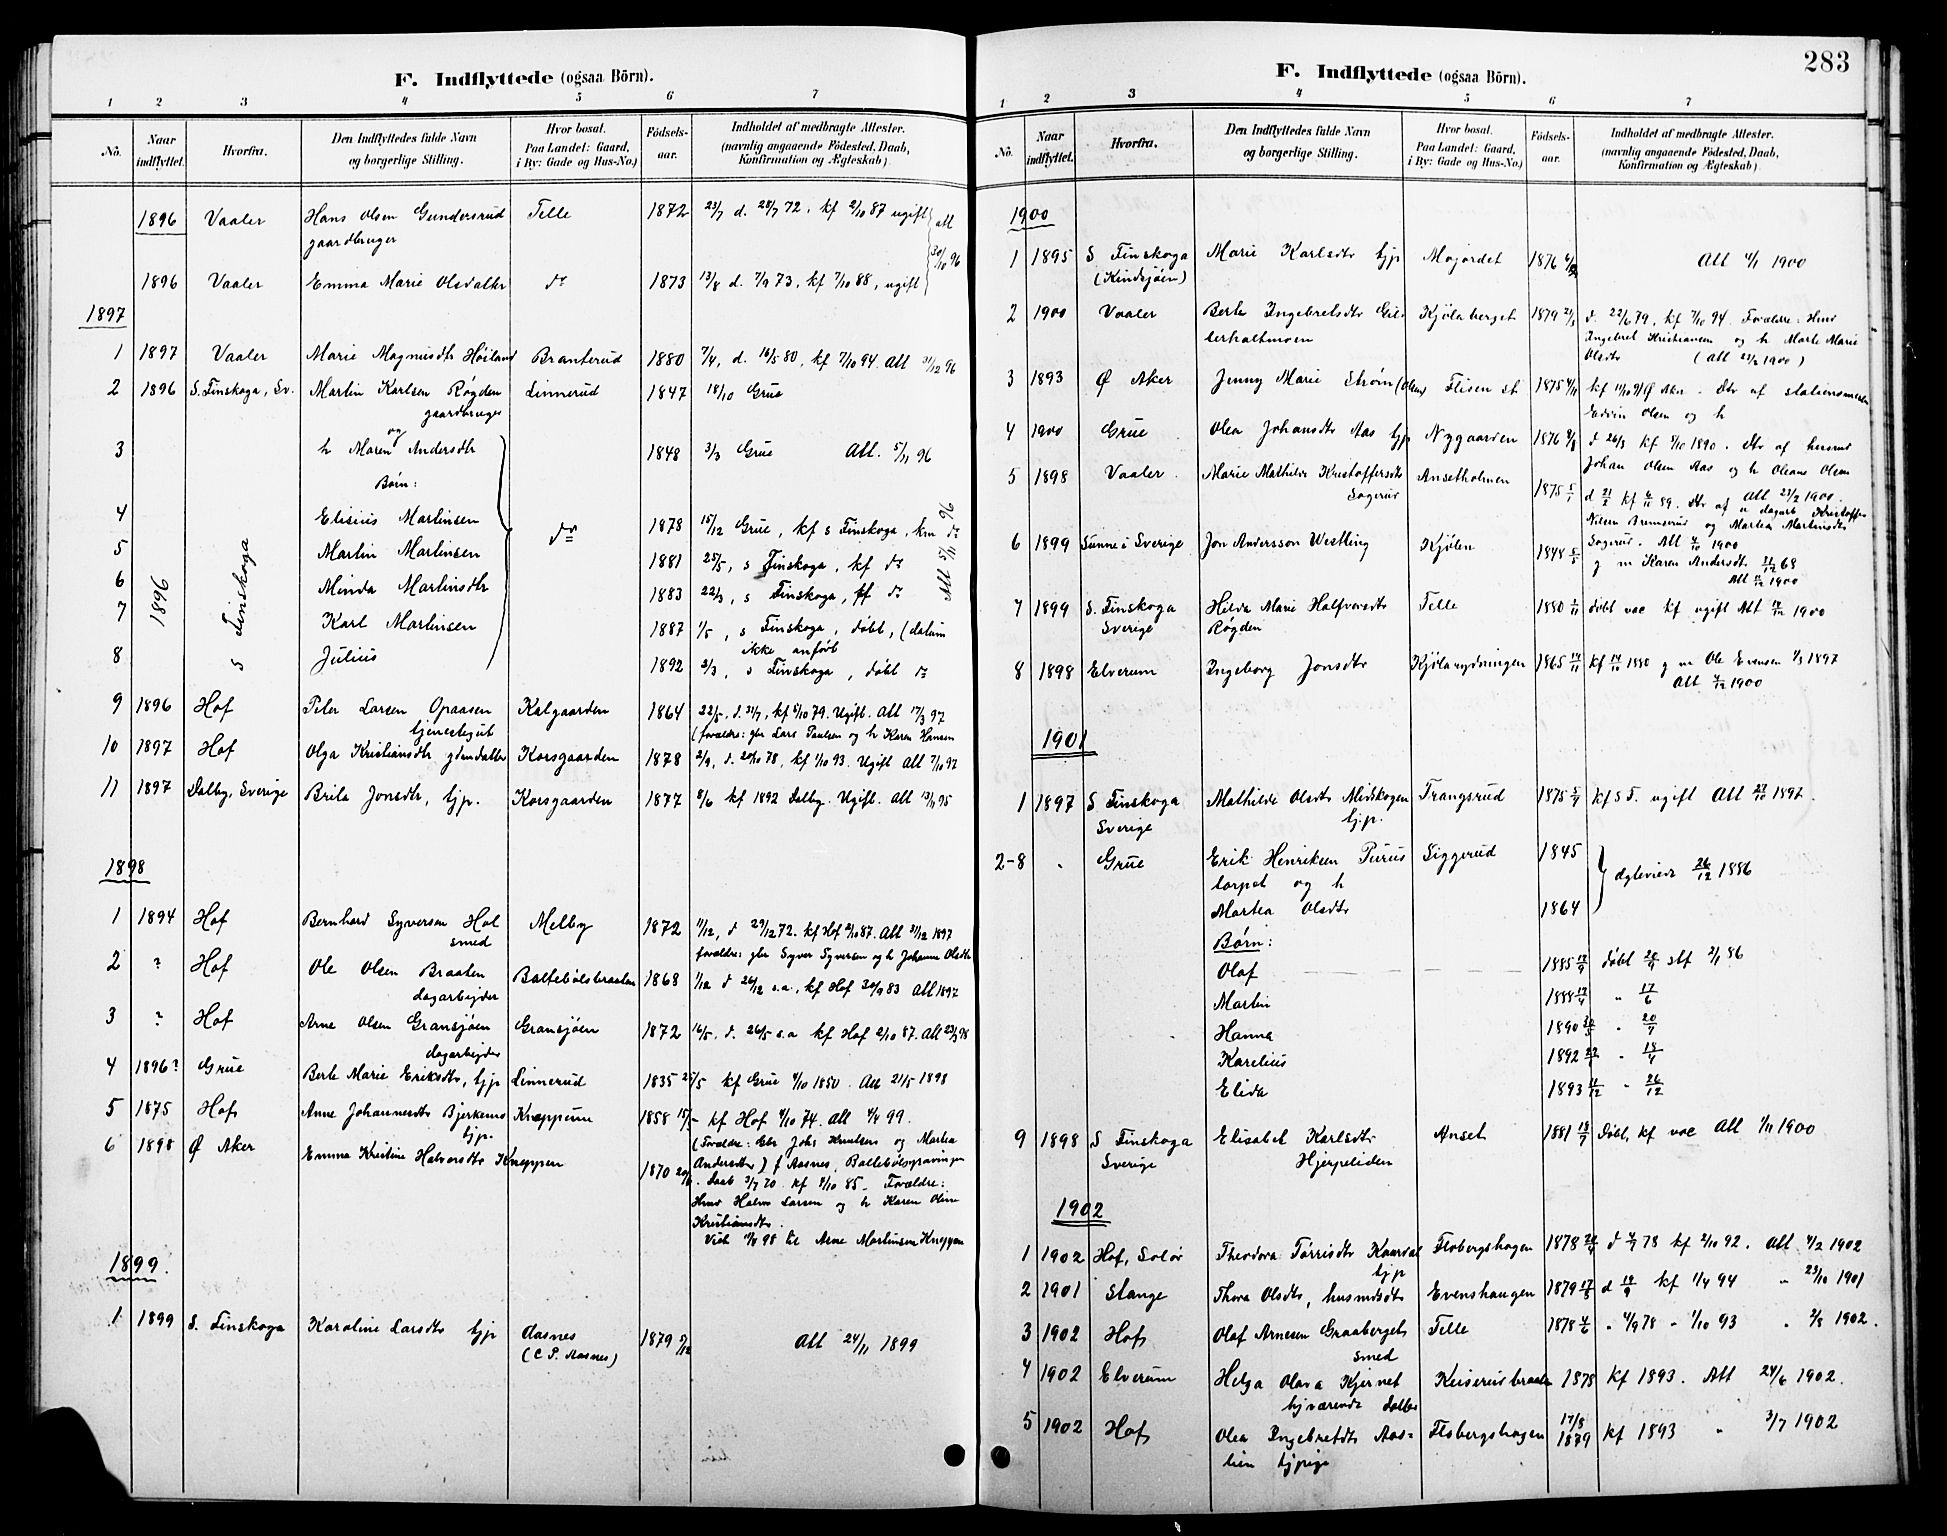 F. Indflyttede (ogsaa Börn).
1 2 3 4 5 6 7
No. Naar indflyttet. Hvorfra. Den Indflyttedes fulde Navn og borgerlige Stilling. Hvor bosat. Paa Landet: Gaard, i By: Gade og Hus-No.) Födsels-aar. Indholdet af medbragte Attester. (navnlig angaaende Födested, Daab, Konfirmation og Ægteskab)
1896 Vaaler Hans Olsen Gundersrud Telle 1872 23/7 d. 28/7 72, kf 2/10 87 ugift
gaardbruger
att 30/10 96
1896 Vaaler Emma Marie Olsdatter do 1873 13/8 d. 7/9 73, kf 7/10 88, ugift
1897
1 1897 Vaaler Marie Magnusdtr Høiland Branterud 1880 7/4, d. 16/5 80, kf 7/10 94. Att 31/12 96
2 1896 S. Finskoga, Sv. Martin Karlsen Røgden Linnerud 1847 18/10 Grue
gaardbruger
og
3 h Maren Andersdtr 1848 3/3 Grue Att. 5/11 96
Børn:
4 Elisius Martinsen do 1878 15/12 Grue, kf s Finskoga, km do
5 Martin Martinsen 1881 25/5, s Finskoga, kf do
6 Minda Martinsdtr 1883 22/3, s Finskoga, kf do
7 Karl Martinsen 1887 1/5, s Finskoga, døbt, (datum
ikke anført
8 Julius 1892 2/3, s Finskoga, døbt do
1896 S Finskoga
Att 5/11 96
9 1896 Hof Peter Larsen Opaasen Kalgaarden 1864 22/5, d. 31/7, kf 5/10 79. Ugift. Att 17/3 97
tjenestegut (forældre: gbr Lars Paulsen og h Karen Hansen
10 1897 Hof Olga Kristiansdtr Korsgaarden 1878 2/9, d. 20/10 78, kf 1/10 93. Ugift Att 7/10 97
11 1897 Dalby, Sverige Brita Jonsdtr, tjp. Korsgaarden 1877 8/6 kf 1892 Dalby. Ugift. Att 13/11 95
1898
1 1894 Hof Bernhard Syversen Hol Melby 1872 11/12, d 29/12 72. kf Hof 2/10 87. Att 31/12 1897
smed forældre: gbr Syver Syversen og h Johanne Olsdtr
2 ? Hof Ole Olsen Braaten Baltebølsbraaten 1868 1/12 d 26/12 s.a., kf Hof 30/9 83 Att 1897
dagarbejder
3 ? Hof Arne Olsen Gransjøen Gransjøen 1872 16/5, d. 26/5 s.a kf Hof 2/10 87. Att 23/3 98
dagarbejder
4 1896? Grue Berte Marie Eriksdtr, tjp Linnerud 1835 25/5 kf Grue 4/10 1850. Att 21/5 1898
5 1875 Hof Anne Johannesdtr Bjerkenes Knappum 1858 kf Hof 4/10 74. Att 4/4 99.
tjp. (Forældre: Gbr Johs Knutsen og Martea
6 1898 Ø Aker Emma Kristine Halvorsdtr Knappen 1870 Andersdtr) f Aasnes, Baltebølsgravingen
Daab 3/7 70 kf 4/10 85. Forældre:
Hmd Halvor Larsen og h Karen Oline
Kristiansdtr.
Viet 98 til Arne Martinsen Knappen
1899.
1 1899 S. Finskoga Karoline Larsdtr tjp Aasnes 1879 Att 24/11 1899
(C P. Aasnes)
283
F. Indflyttede (ogsaa Börn).
1 2 3 4 5 6 7
No. Naar indflyttet. Hvorfra. Den Indflyttedes fulde Navn og borgerlige Stilling. Hvor bosat. Paa Landet: Gaard, i By: Gade og Hus-No.) Födsels-aar. Indholdet af medbragte Attester. (navnlig angaaende Födested, Daab, Konfirmation og Ægteskab)
1900
1 1895 S Finskoga Marie Karlsdtr tjp Mojordet 1876 Att 4/1 1900
(Kindsjøen)
2 1900 Vaaler Berte Ingebretsdtr Gil- Kjølaberget 1879 d. 22/6 79, kf 7/10 94. Forældre: Hmd
terholtmoen Ingebret Kristiansen og h Marte Marie
Olsdtr (Att 23/2 1900)
3 1893 Ø Aker Jenny Marie Strøm (Olsen) Flisen st 1875 kf 11/10 91 Ø Aker. Dtr af stationsmester
Edvin Olsen og h
4 1900 Grue Olea Johansdtr Aas tjp Nygaarden 1876 d 26/3 kf 5/10 1890. Dtr af husmd
Johan Olsen Aas og h Oleane Olsen
Att 23/2 1900.
5 1898 Vaaler Marie Mathilde Kristoffersdtr Ansetholmen 1875 5/1 d 21/2 kf 6/11 89. Dtr af dagarb Kristoffer
Sogerud Nilsen Bremserud og Martea Martinsdtr
Sogerud. Att 1900
6 1899 Sunne i Sverige Jon Andersson Westling Kjølen 1848 5/5 g m Karen Andersdtr 31/12 68
Att 1900
7 1899 S. Finskoga Hilda Marie Halfvorsdtr Telle 1880 1/11 døbt vac kf ugift Att 1900
Sverige Røgden
8 1898 Elverum Ingeborg Jonsdtr Kjølarydningen 1865 kf 1880 g m Ole Evensen 1/3 1897
Att 1900
1901
1 1897 S Finskoga Mathilde Olsdtr Midskogen Trangsrud 1875 5/9 kf s F. ugift Att 27/10 1897.
Sverige tj.p.
2-8 Grue Erik Henriksen Purus Siggerud 1845
torpet og h Ægteviede 26/12 1886
Martea Olsdtr 1864
Børn:
Olaf 1885 døbt 20/9 stf 3/1 86
Martin 1888 " 17/6
Hanna 1890 " 20/9
Karelius 1892 " 18/9
Elida 1893 " 26/12
9 1898 S Finskoga Elisabet Karlsdtr Anset 1881 18/9 Døbt, kf vac Att 1/11 1900
Sverige Hjerpeliden
1902
1 1902 Hof, Solør Theodora Tørrisdtr Kaardal Flobergshagen 1878 d 78 kf 2/10 92. Att 4/2 1902
tjp
2 1901 Stange Thora Olsdtr, husmdsdtr Evenshaugen 1879 17/8 d 19/9 kf 1/4 94 " 23/10 1901
3 1902 Hof Olaf Arnesen Graaberget Telle 1878 " 4/9 78 " 1/10 93 " 2/8 1902.
smed
4 1902 Elverum Helga Olava Kjernet Keiserudbraaten 1878 kf 1893. Att 24/6 1902.
tjværende datter
5 1902 Hof Olea Ingebretdtr Aas- Flobergshagen 17/8 1879 kf 1893 " 3/7 1902
lien tjpige